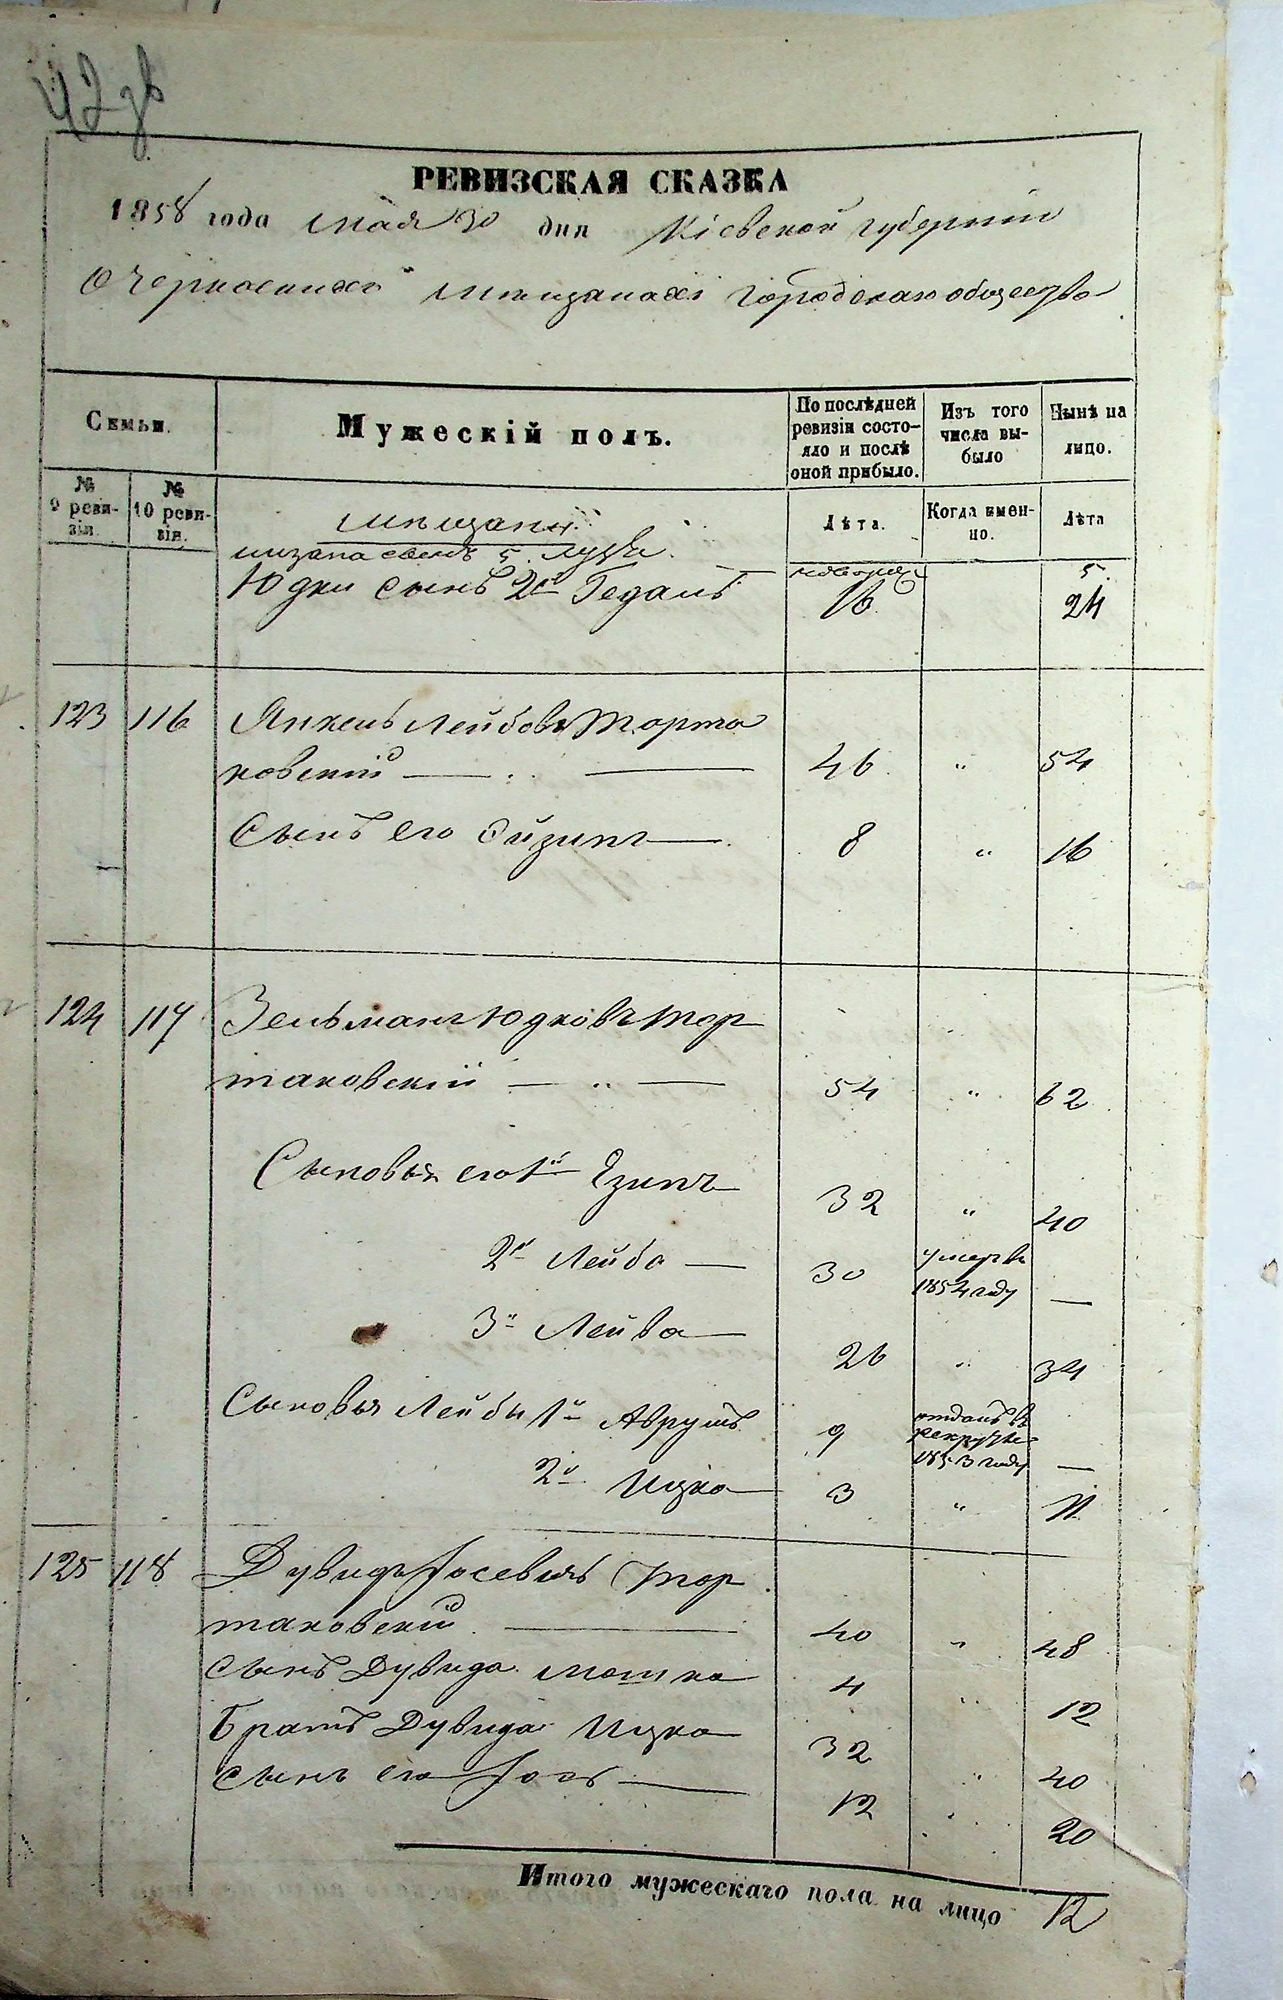 42
РЕВИЗСКАЯ СКАЗКА
1858 года мая 30 дня Кіевской губерніи
О Черкасскихъ мѣщанахъ городскаго общества
Семьи.
Мужескій полъ.
По послѣдней ревизіи состояло и послѣ оной прибыло.
Изъ того числа выбыло
Нынѣ на лицо.
№ 9 ревизіи.
№ 10 ревизіи.
Лѣта.
Когда именно.
Лѣта
мѣщане
сынъ 5. 5.
Юдки сынъ 2й Гедаль 16 24
123 116 Янкель Лейбовъ Торта
ковскій — 46 " 54
Сынъ его Ойзикъ — 8 " 16
124 117 Зельманъ Юдковъ Тор
таковскій — " — 54 " 62
Сыновья его 1й Езикъ 32 " 40
2й Лейба — 30 умеръ въ 1854 году —
3й Лейва — 26 " 34
Сыновья Лейбы 1й Аврумъ 9 отданъ въ рекруты 1853 году —
2й Ицко — 3 " 11
125 118 Дувидъ Іосевичъ Тор
таковскій. — 40 " 48
сынъ Дувида Мошко 4 " 12
Братъ Дувида Ицко 32 " 40
сынъ его Іось — 12 " 20
Итого мужескаго пола на лицо 12